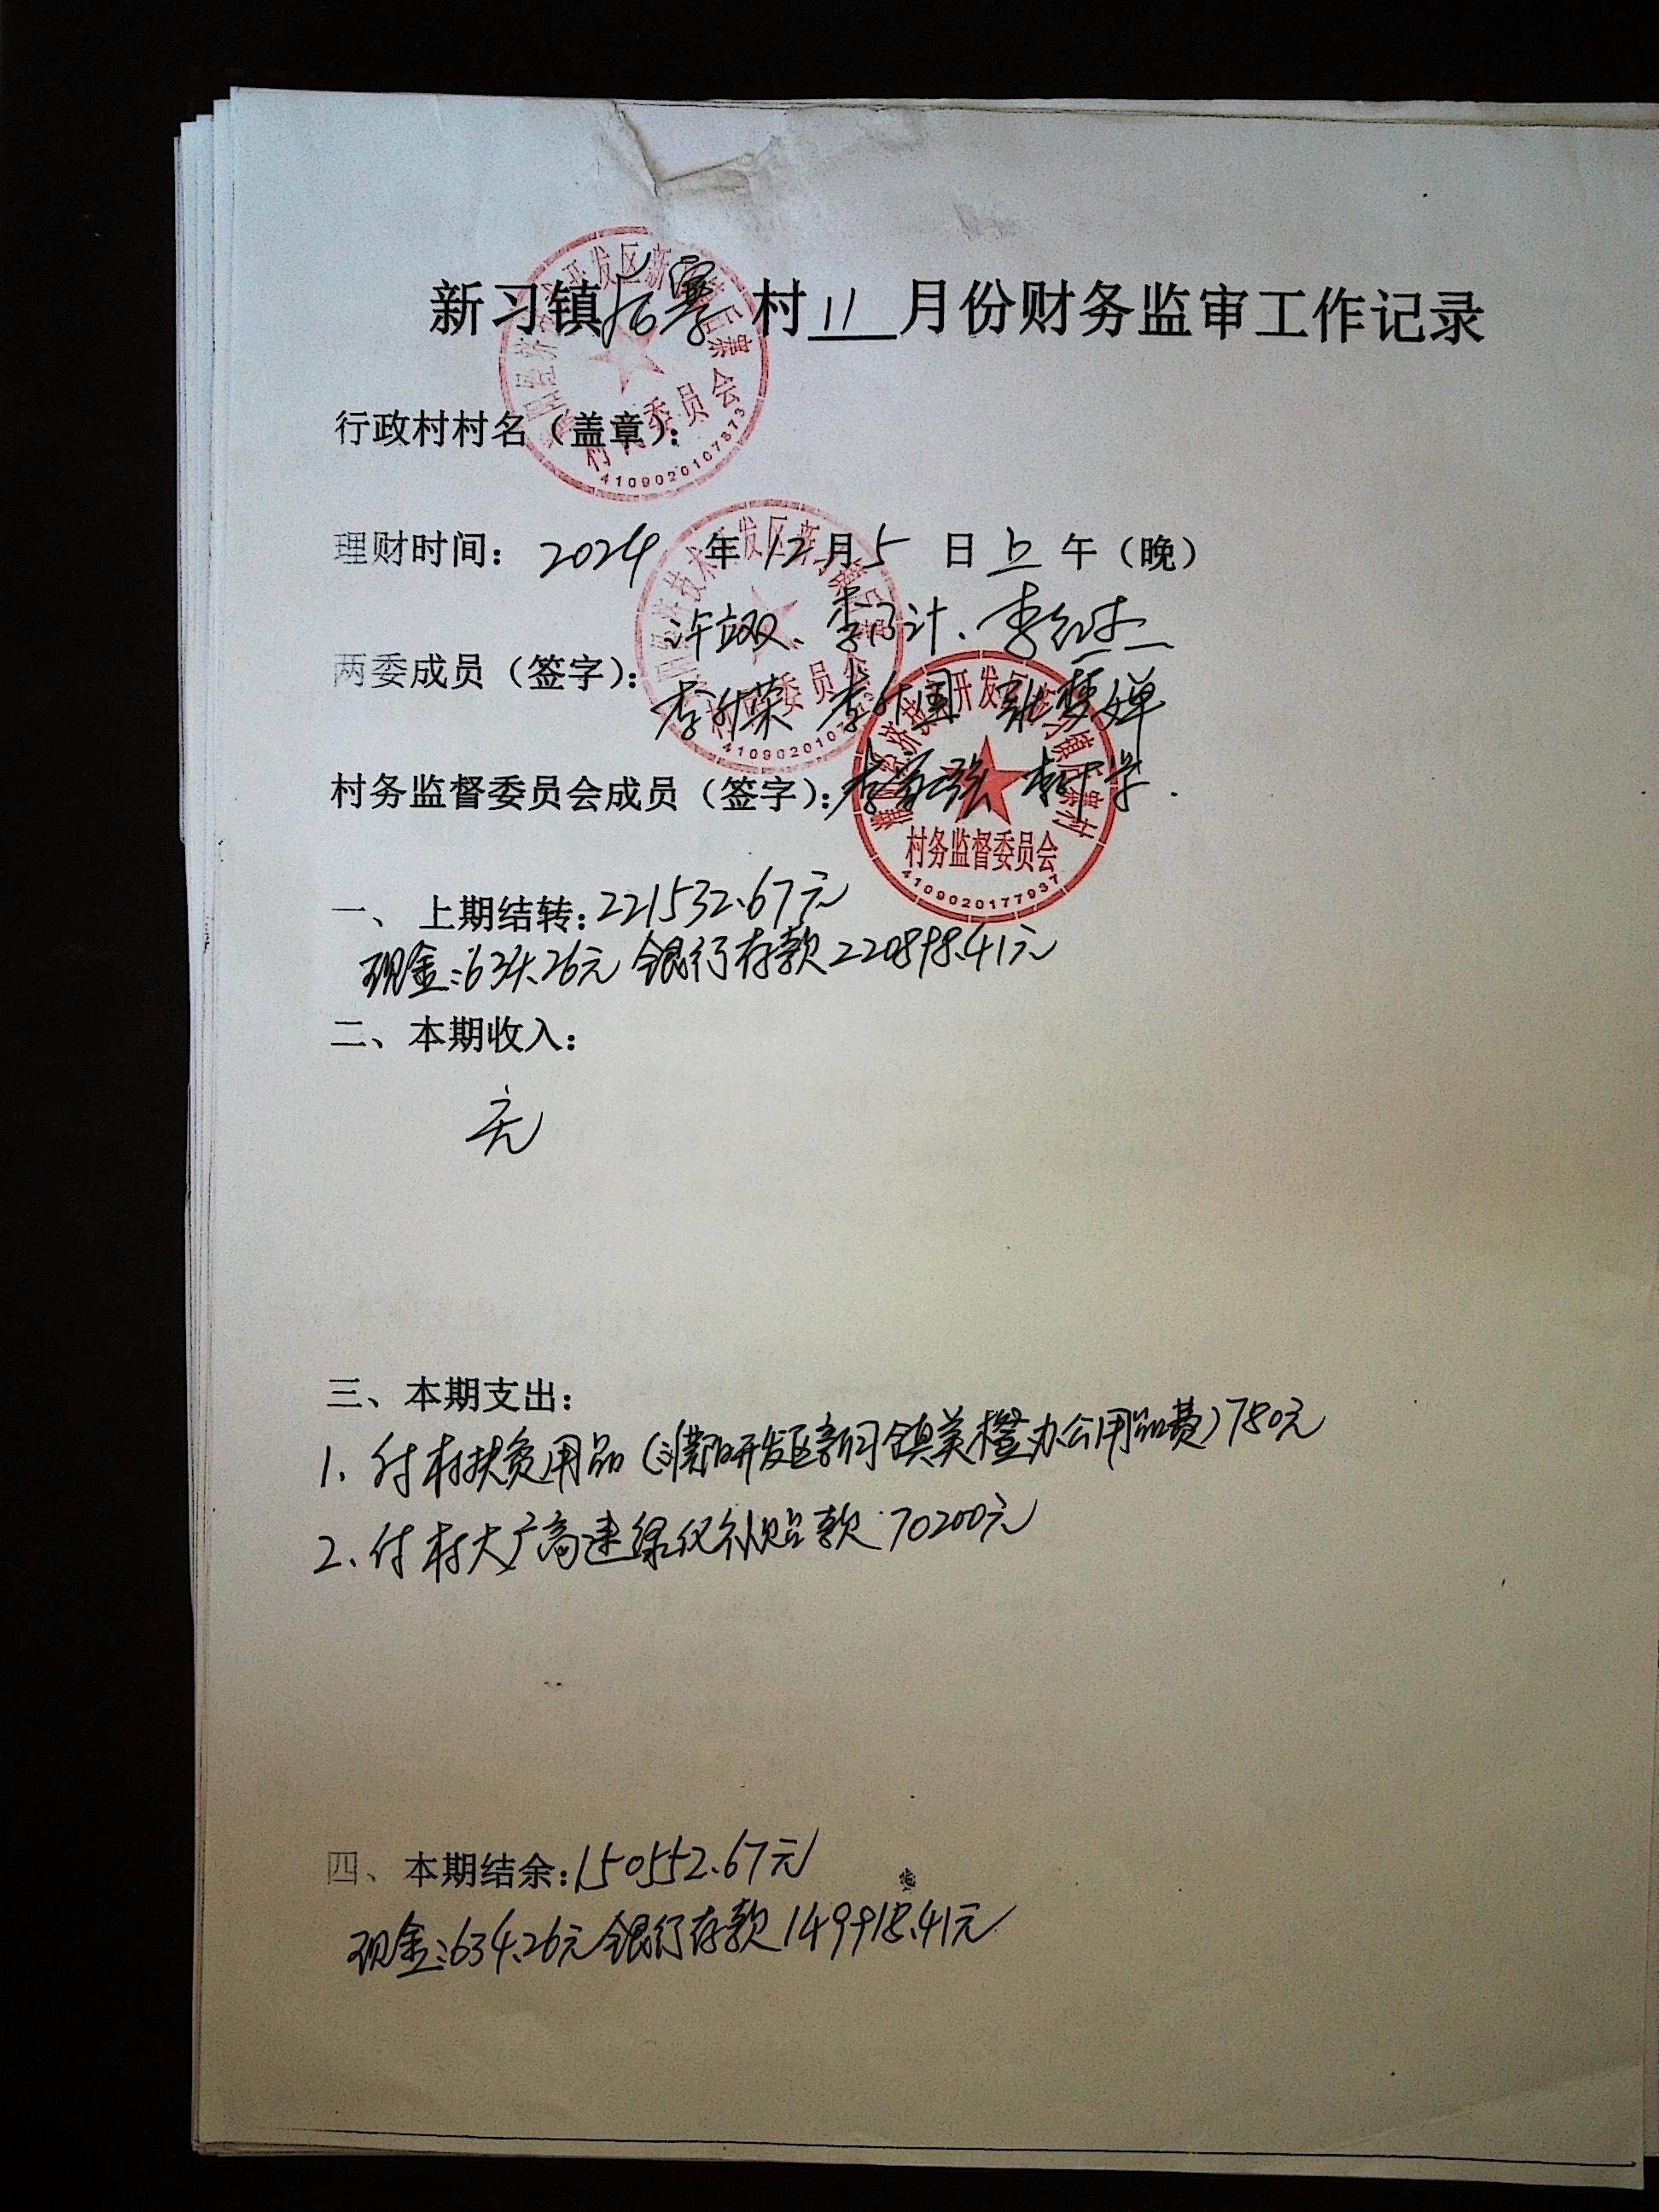 新习镇后寨村11月份财务监审工作记录
行政村村名（盖章）：
村民委员会
4109020107873
理财时间：2024年12月5日上午（晚）
许双、李计、李红杰
两委成员（签字）：
李升荣 李升国 张梦婵
村务监督委员会成员（签字）：李学
村务监督委员会
4109020177937
一、上期结转：221532.67元
现金：634.26元 银行存款220898.41元
二、本期收入：
无
三、本期支出：
1、付村扶贫用品（濮阳开发区新习镇美橙办公用品费）780元
2、付村大广高速绿化补贴款70200元
四、本期结余：150552.67元
现金：634.26元 银行存款149918.41元